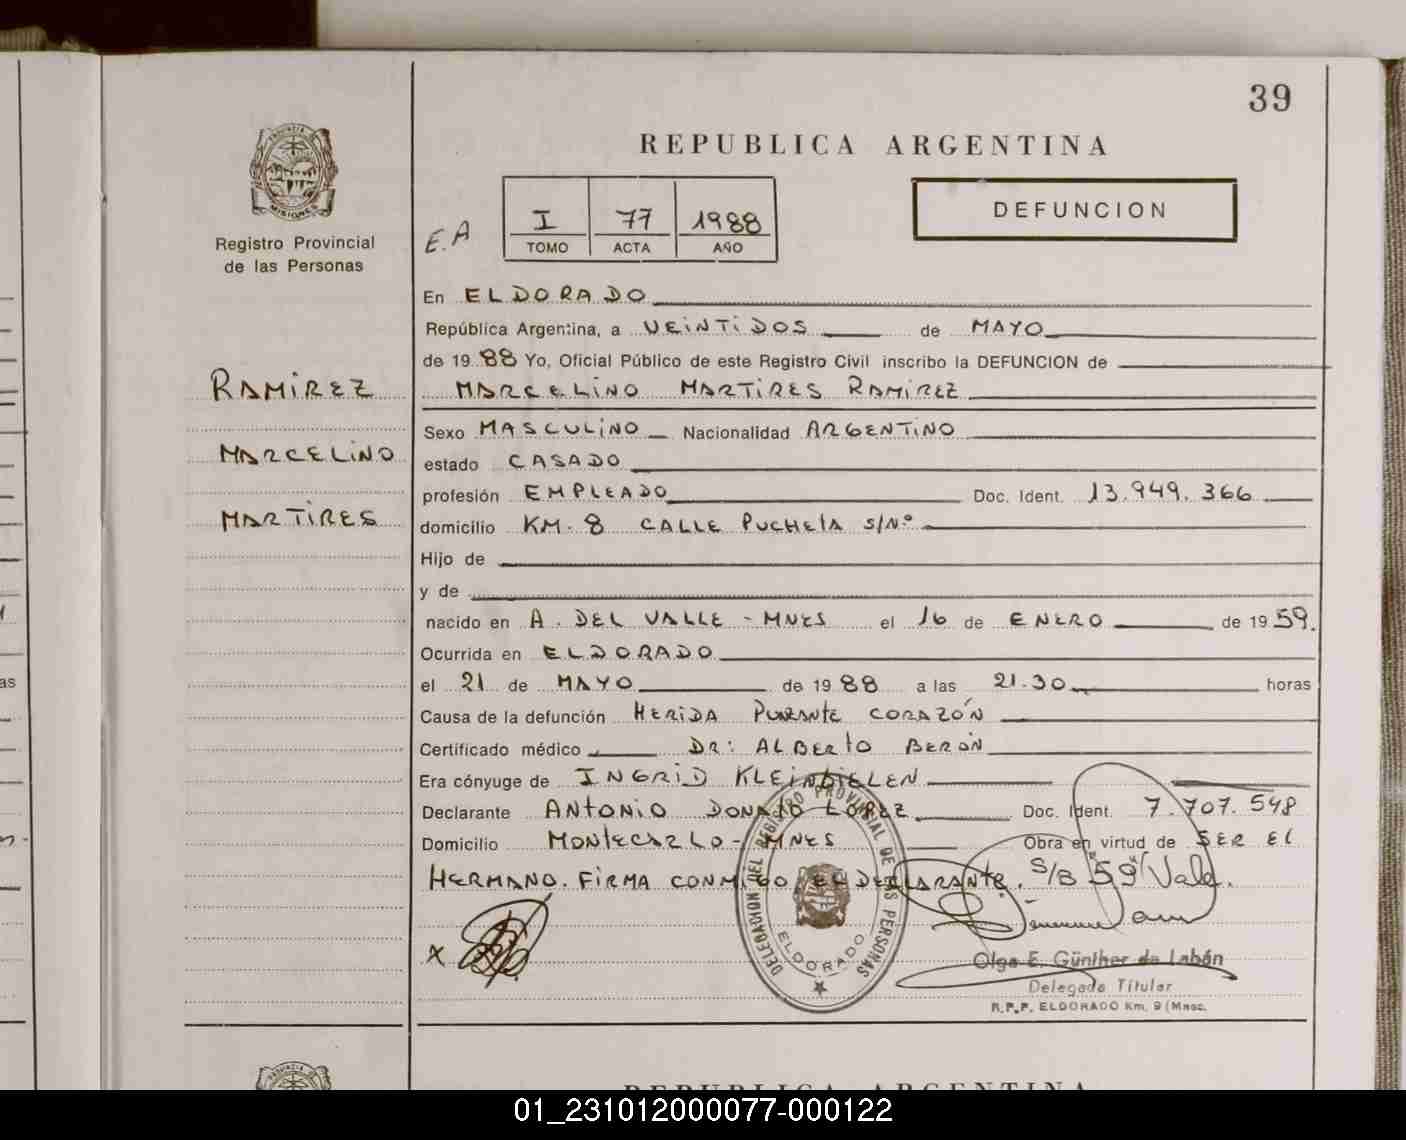 39
REPUBLICA ARGENTINA
MISIONES
Registro Provincial
de las Personas
E.A
I 77 1988
TOMO ACTA AÑO
DEFUNCION
RAMIREZ
MARCELINO
MARTIRES
En ELDORADO
República Argentina, a VEINTIDOS de MAYO
de 19 88 Yo, Oficial Público de este Registro Civil inscribo la DEFUNCION de
MARCELINO MARTIRES RAMIREZ
Sexo MASCULINO Nacionalidad ARGENTINO
estado CASADO
profesión EMPLEADO Doc. Ident. 13.949.366
domicilio KM. 8 CALLE PUCHETA S/Nº
Hijo de
y de
nacido en A. DEL VALLE - MNES el 16 de ENERO de 19 59.
Ocurrida en ELDORADO
el 21 de MAYO de 19 88 a las 21.30 horas
Causa de la defunción HERIDA PUNZANTE CORAZÓN
Certificado médico DR: ALBERTO BERÓN
Era cónyuge de INGRID KLEINBIELEN
Declarante ANTONIO DONATO LOPEZ Doc. Ident. 7.707.548
Domicilio MONTECARLO - MNES Obra en virtud de SER EL
HERMANO. FIRMA CONMIGO EL DECLARANTE. S/B "59" Vale.
X
DELEGACION DEL REGISTRO PROVINCIAL DE LAS PERSONAS
ELDORADO
Olga E. Günther de Labán
Delegada Titular
R.P.P. ELDORADO Km. 9 (Mnes.
REPUBLICA ARGENTINA
as
01_231012000077-000122